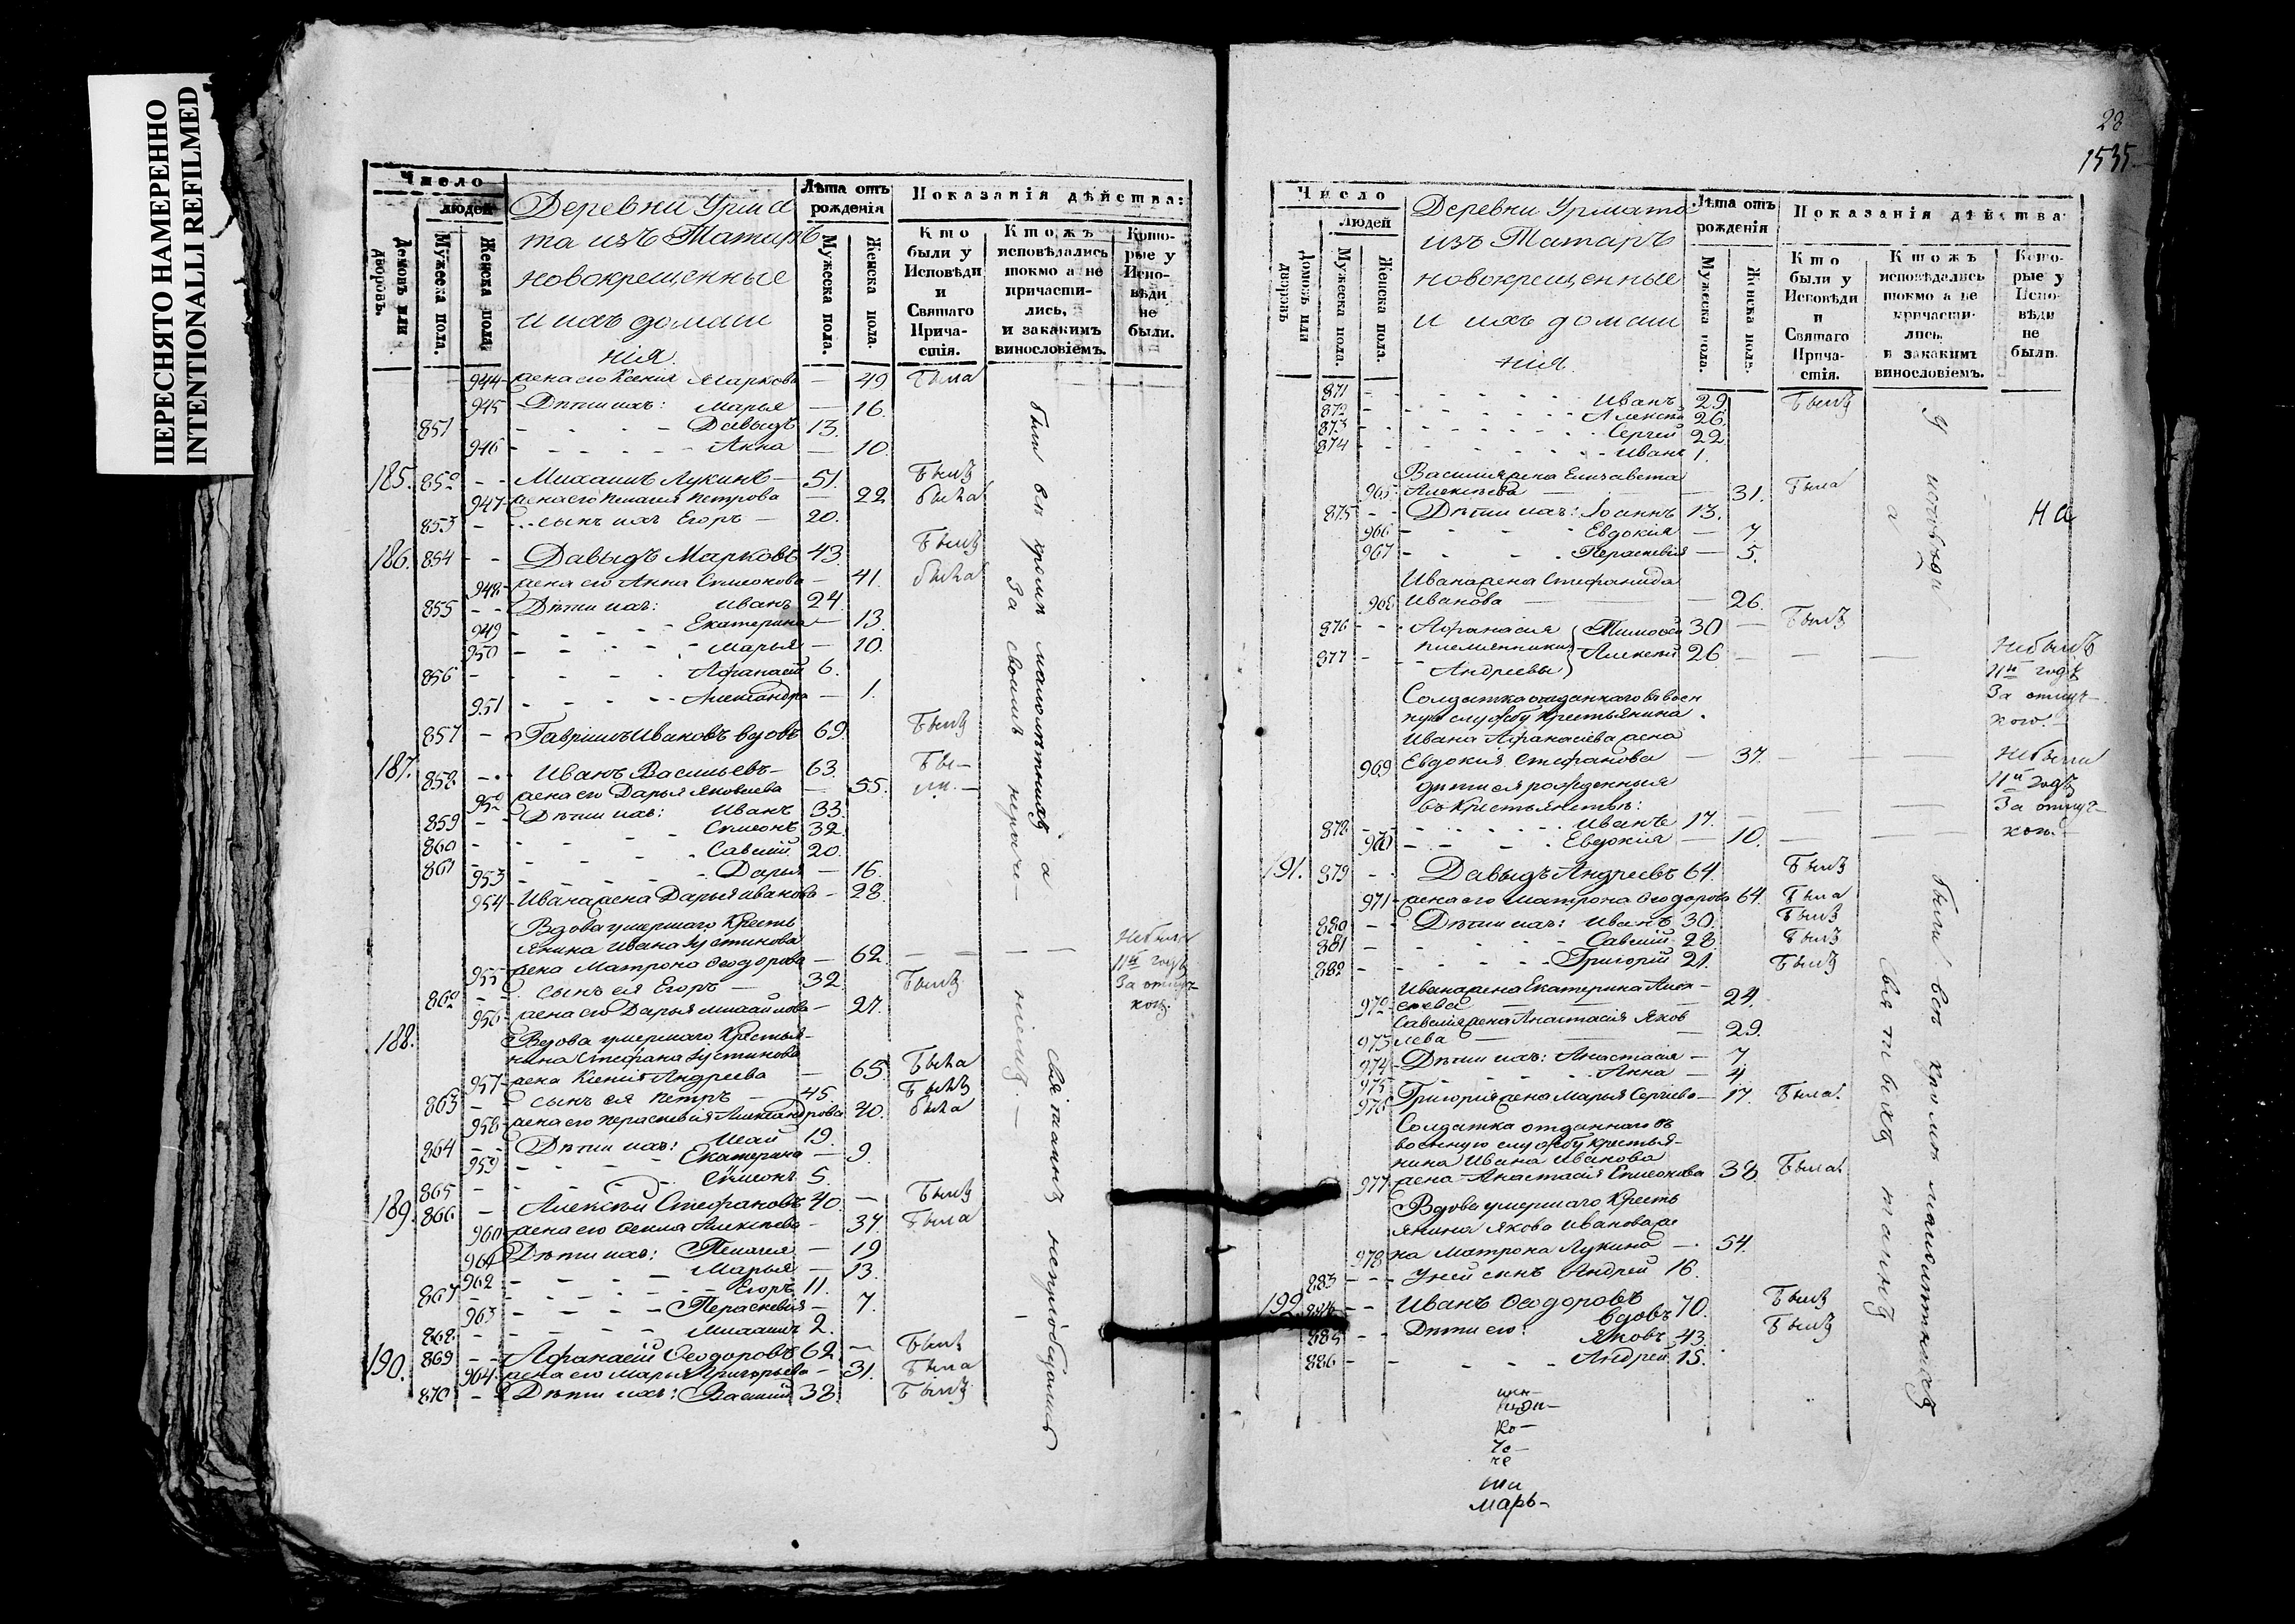 ПЕРЕСНЯТО НАМЕРЕННО
INTENTIONALLI REFILMED
Число
людей
Домовъ или дворовъ.
Мужеска пола.
Женска пола.
Деревни Урма
та изъ Татаръ
новокрещенные
и ихъ домаш
нія.
Лѣта отъ рожденія
Мужеска пола.
Женска пола.
Показанія дѣйства:
Кто были у Исповѣди и Святаго Прича- стія.
Ктожъ исповѣдались токмо а не причасти- лись, и закакимъ винословіемъ.
Кото- рые у Испо- вѣди не были.
944 жена его Ксенія Маркова — 49 была
945 Дѣти ихъ: Марья — 16.
851 Давыдъ 13.
946 Анна — 10
185. 852 Михаилъ Лукинъ — 51. былъ
947 жена его Пелагея Петрова — 22 была
853 сынъ ихъ Егоръ — 20.
186. 854 Давыдъ Марковъ 43. былъ
948 жена его Анна Симеонова — 41. была
855 Дѣти ихъ: Иванъ 24.
949 Екатерина — 13.
950 Марья — 10.
856 Афанасій 6.
951 Александра — 1.
857 Гавріилъ Ивановъ вдовъ 69. былъ
187. 858 Иванъ Васильевъ — 63. бы—
952 жена его Дарья Яковлева — 55. ли. —
859 Дѣти ихъ: Иванъ 33.
860 Симеонъ 32.
861 Савелій 20.
953 Дарья — 16.
954 Ивана жена Дарья Иванова — 28.
Вдова умершаго Кресть
янина Ивана Іустинова
955 жена Матрона Ѳеодорова — 62. — — — Небыла
11й годъ
За отлуч-
кой.
862 сынъ ея Егоръ — 32. былъ
956 жена его Дарья Михайлова — 27.
188. Вдова умершаго Крестья-
нина Стефана Іустинова
957 жена Ксенія Андреева — 65. была
863 сынъ ея Петръ — 45. былъ
958 жена его Параскевія Александрова 40. была
864 Дѣти ихъ: 19.
959 Екатерина — 9.
865 Симеонъ 5.
189. 866 Алексѣй Стефановъ 40. — былъ
960 жена его Алексѣева — 34 была
961 Дѣти ихъ: Пелагея — 19
962 Марья — 13.
867 Егоръ 11.
963 Параскевія — 7.
868 Михаилъ 2.
190. 869 Афанасій Ѳеодоровъ 62. — былъ
964 жена его Марья Григорьева — 31. была
870 Дѣти ихъ: Василій 38. былъ
были всѣ кромѣ малолѣтнихъ а Святыхъ таинъ непріобщались
За своимъ нераче—ніемъ. —
28
1535.
Число
Людей
Домовъ или дворовъ
Мужеска пола.
Женска пола.
Деревни Урмата
изъ Татаръ
новокрещенные
и ихъ домаш
нія.
Лѣта отъ рожденія
Мужеска пола.
Женска пола.
Показанія дѣйства:
Кто были у Исповѣди и Святаго Прича- стія.
Ктожъ исповѣдались токмо а не причасти- лись. и закакимъ винословіемъ.
Кото- рые у Испо- вѣди не были.
871 Иванъ 29. былъ
872 Алексѣй 26.
873 Сергей 22
874 Иванъ 1.
Василія жена Елисавета
965 Алексѣева — 31. была
875 Дѣти ихъ: Іоаннъ 13.
966 Евдокія — 7.
967 Параскевія — 5.
Ивана жена Стефанида
968 Иванова — 26.
876 Афанасія Тимоѳей 30 — былъ
племянники
877 Алексѣй 26 — — — Небылъ
Андреевы
11й годъ
За отлуч-
кою.
Солдатка отданнаго въ воен
ную службу Крестьянина
Ивана Афанасіева жена
969 Евдокія Стефанова — 37. — — Небыли
дѣти ея рожденныя
въ Крестьянствѣ:
11й годъ
За отлуч-
кою.
878 Иванъ 17.
970 Евдокія — 10.
191. 879 Давыдъ Андреевъ 64. былъ
971 жена его Матрона Ѳеодорова 64. была
880 Дѣти ихъ: Иванъ 30. былъ
881 Савелій 28. былъ
882 Григорій 21. былъ
Ивана жена Екатерина Алек-
972 сѣева — 24.
Савелія жена Анастасія Яков
973 лева — 29.
974 Дѣти ихъ: Анастасія — 7
975 Анна — 4
976 Григорія жена Марья Сергіева — 17. была.
Солдатка отданнаго въ
военную службу крестья-
нина Ивана Иванова
977 жена Анастасія Симеонова 38 была.
Вдова умершаго Кресть
янина Якова Иванова же
978 на Матрона Лукина — 54.
883 У ней сынъ Андрей 16.
192. 884 Иванъ Ѳеодоровъ
вдовъ 70. былъ
885 Дѣти его: Яковъ 43. былъ
886 Андрей 15.
У исповѣди были всѣ кромѣ малолѣтнихъ
а Святыхъ таинъ
На
Ко—
че
ши
Марь—